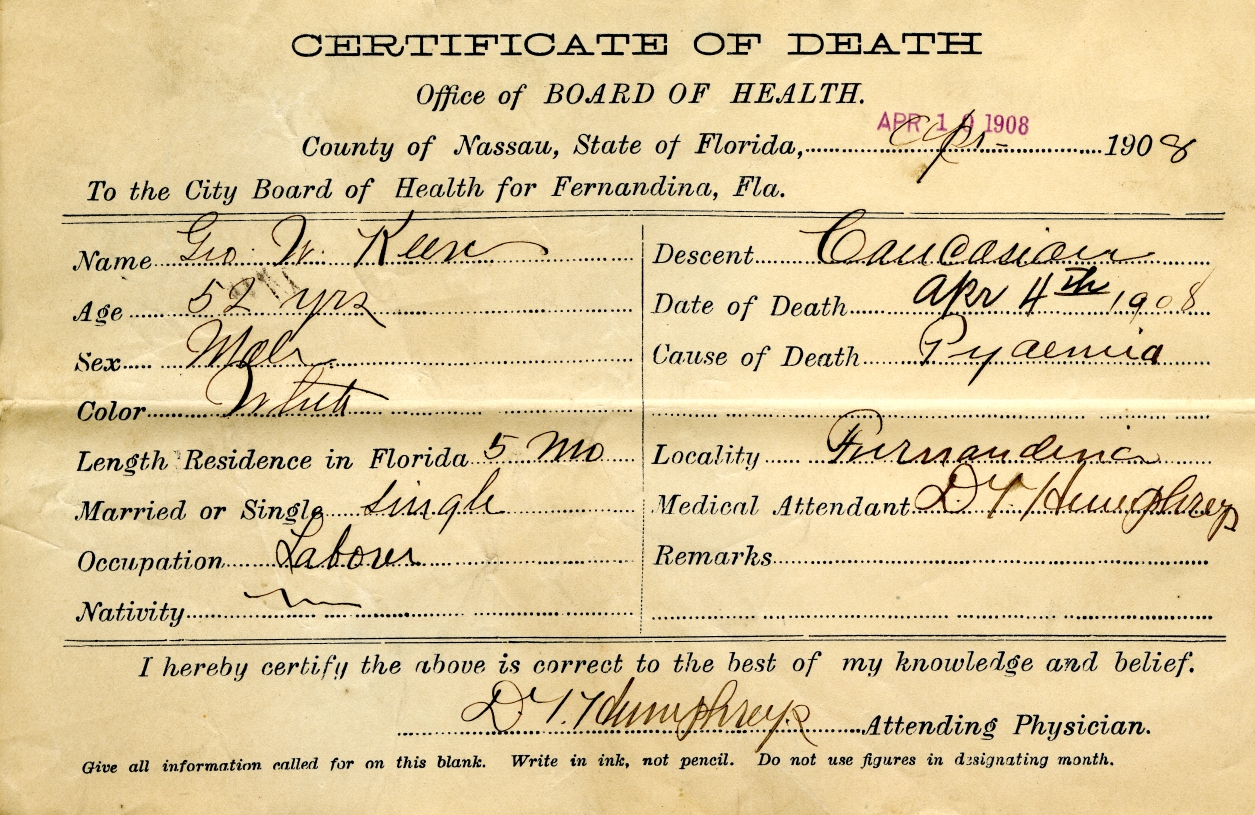 CERTIFICATE OF DEATH
Office of BOARD OF HEALTH.
APR 10 1908
County of Nassau, State of Florida, Apr- 1908
To the City Board of Health for Fernandina, Fla.
Name Geo. W. Keen
Age 52 yrs
Sex Male
Color White
Length Residence in Florida 5 Mo
Married or Single Single
Occupation Laborer
Nativity
Descent Caucasian
Date of Death Apr 4th 1908
Cause of Death Pyaemia
Locality Fernandina
Medical Attendant D. Humphreys
Remarks
I hereby certify the above is correct to the best of my knowledge and belief.
D. Humphreys Attending Physician.
Give all information called for on this blank. Write in ink, not pencil. Do not use figures in designating month.